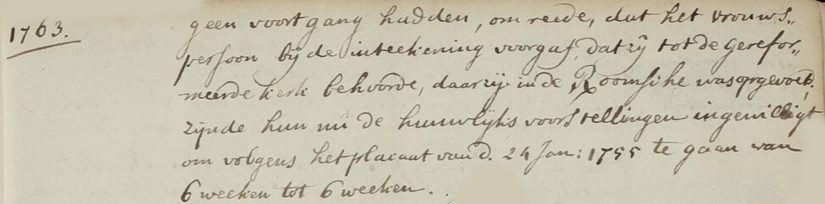 1763.
geen voortgang hadden, om reede, dat het vrouws„
persoon bij de inteekening voorgaf, dat zij tot de Gerefor„
meerde kerk behoorde, daar zij in de Roomsche was opgevoed,
zijnde hun nu de huuwlijks voorstellingen ingewilligt
om volgens het placaat van d. 24 Jan: 1755 te gaan van
6 weeken tot 6 weeken. .